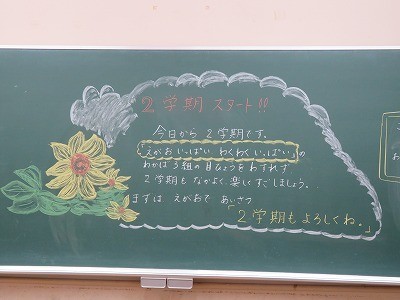 2学期 スタート!!
今日から 2学期です。
「えがおいっぱい わくわくいっぱい」の
わかば3組の目ひょうをわすれず
2学期も なかよく 楽しくすごしましょう。
まずは えがおで あいさつ
「2学期もよろしくね。」